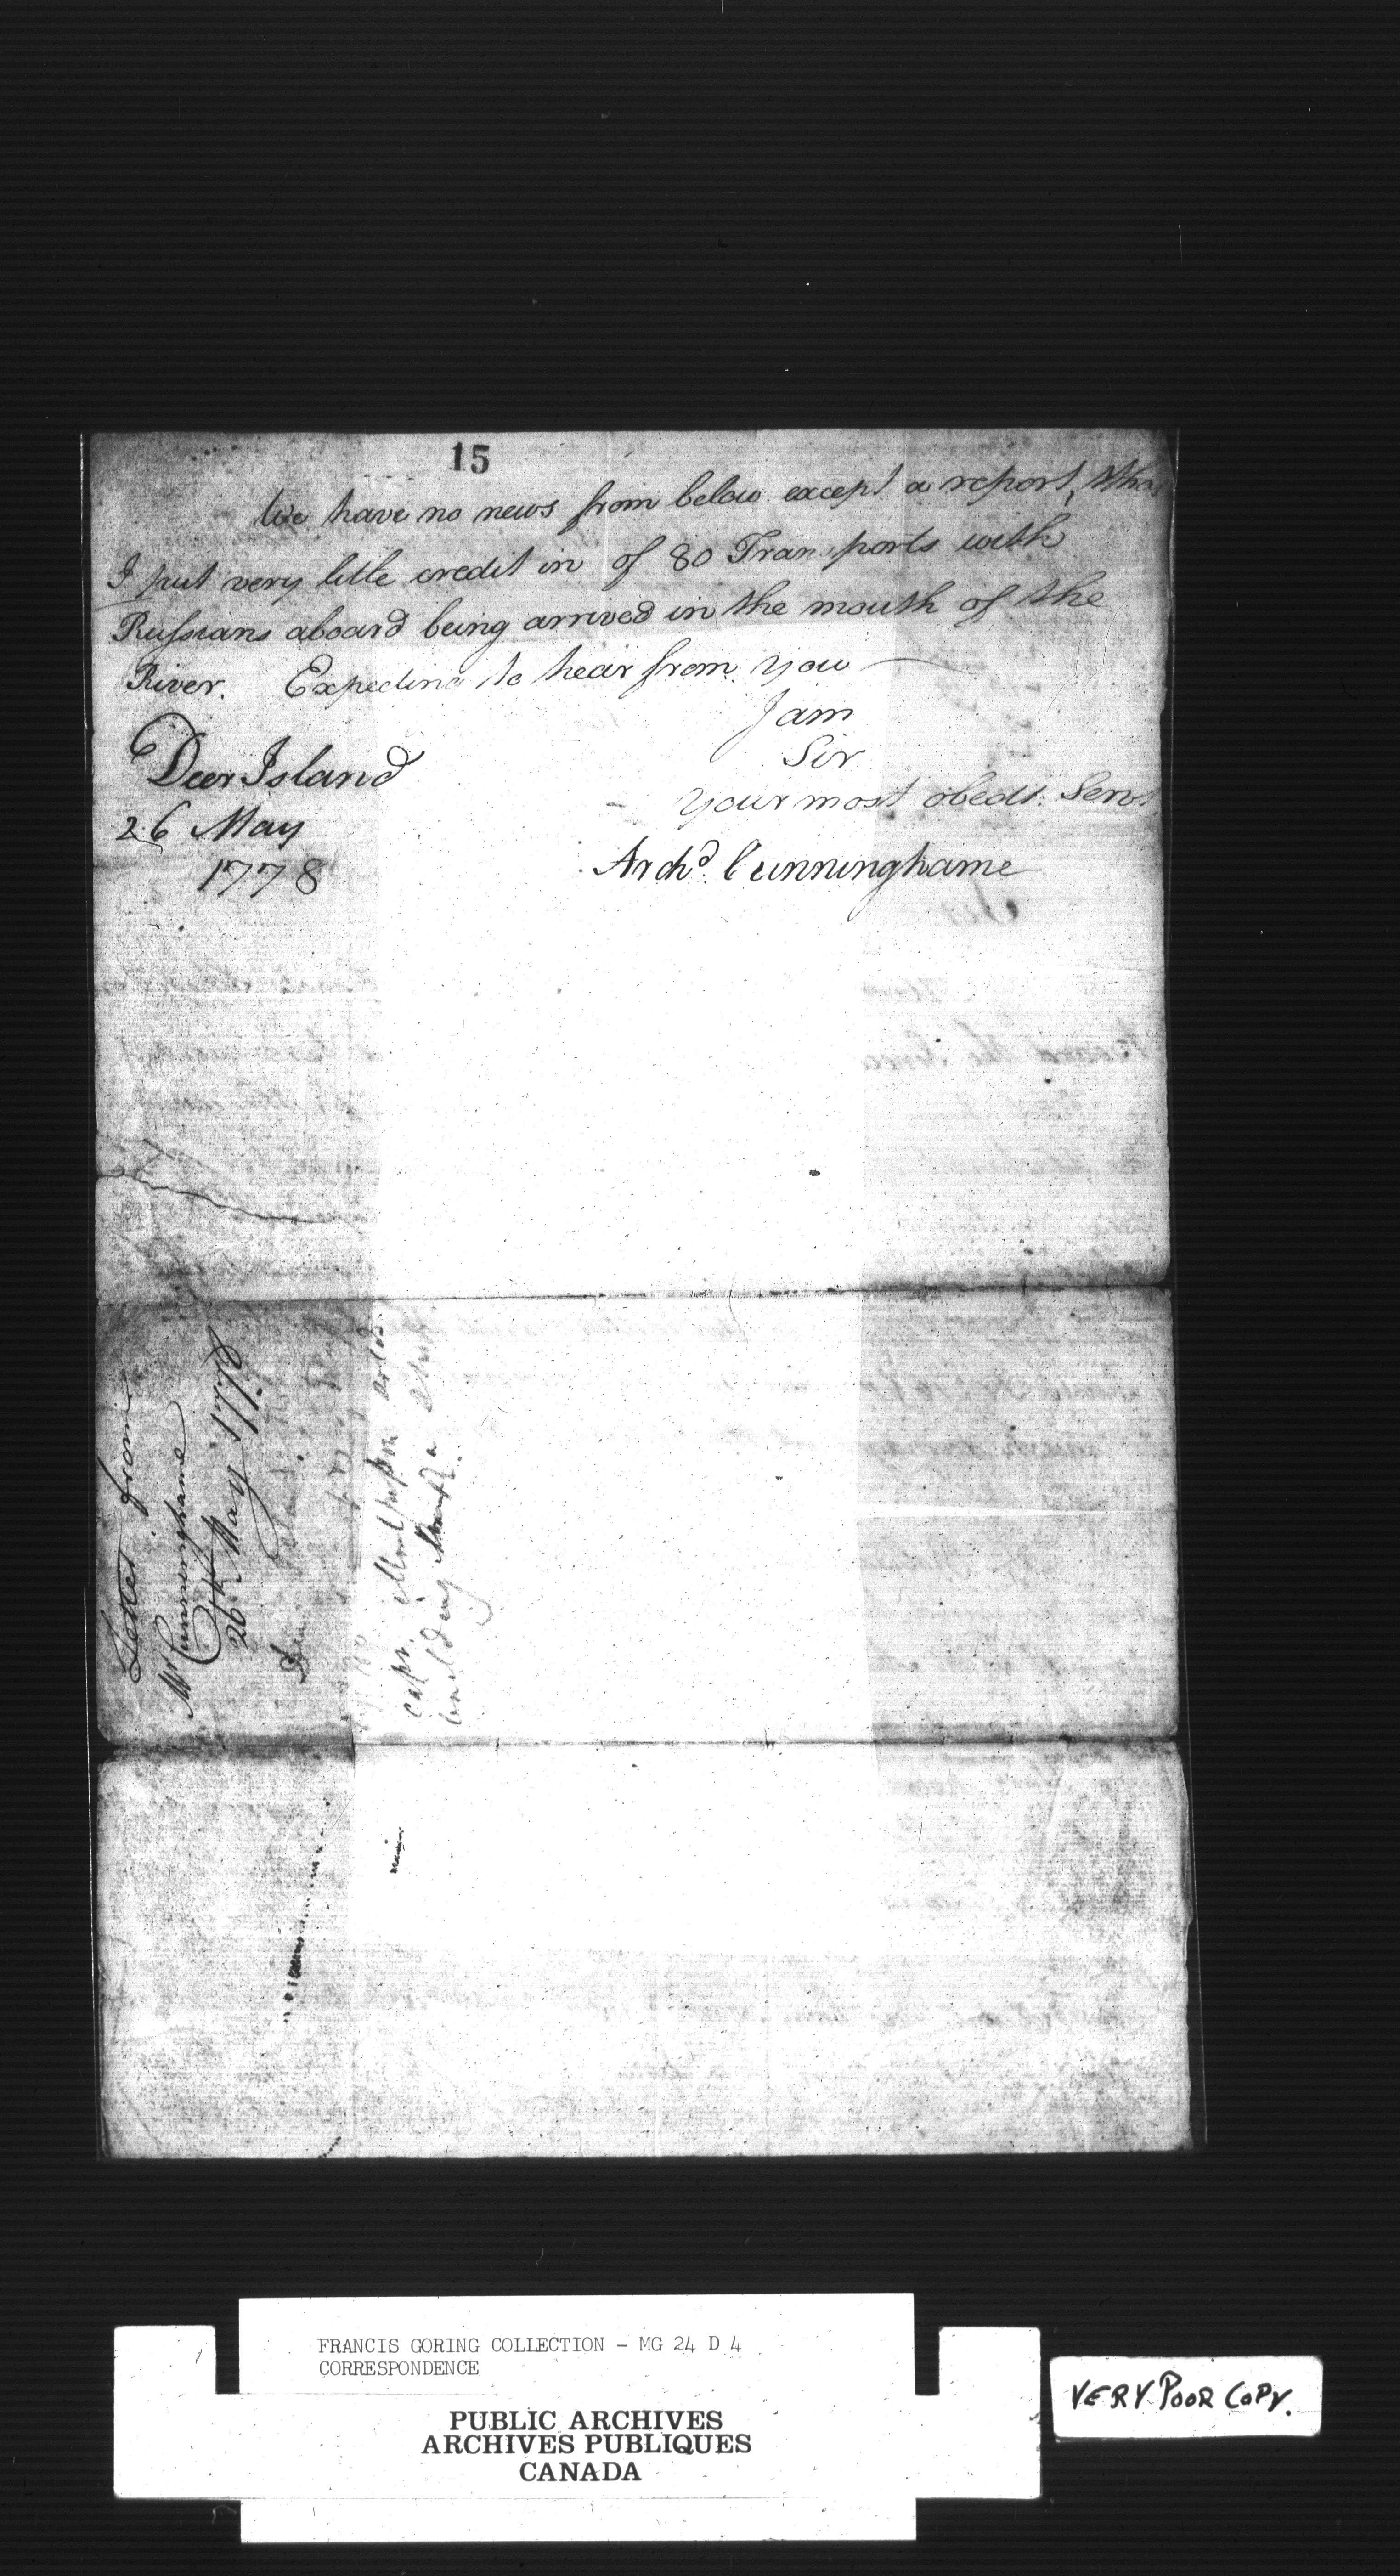 15
We have no news from below except a report, that
I put very litle credit in of 80 Transports with
Russians aboard being arrived in the mouth of the
River. Expecting to hear from you
I am
Sir
Your most obedt. Servt
Archd. Cunninghame
Deer Island
26 May
1778
Letter from
Mr Cunninghame
26th May 1778
Deer Island
capn.
building a
FRANCIS GORING COLLECTION - MG 24 D 4
CORRESPONDENCE
PUBLIC ARCHIVES
ARCHIVES PUBLIQUES
CANADA
VERY POOR COPY.